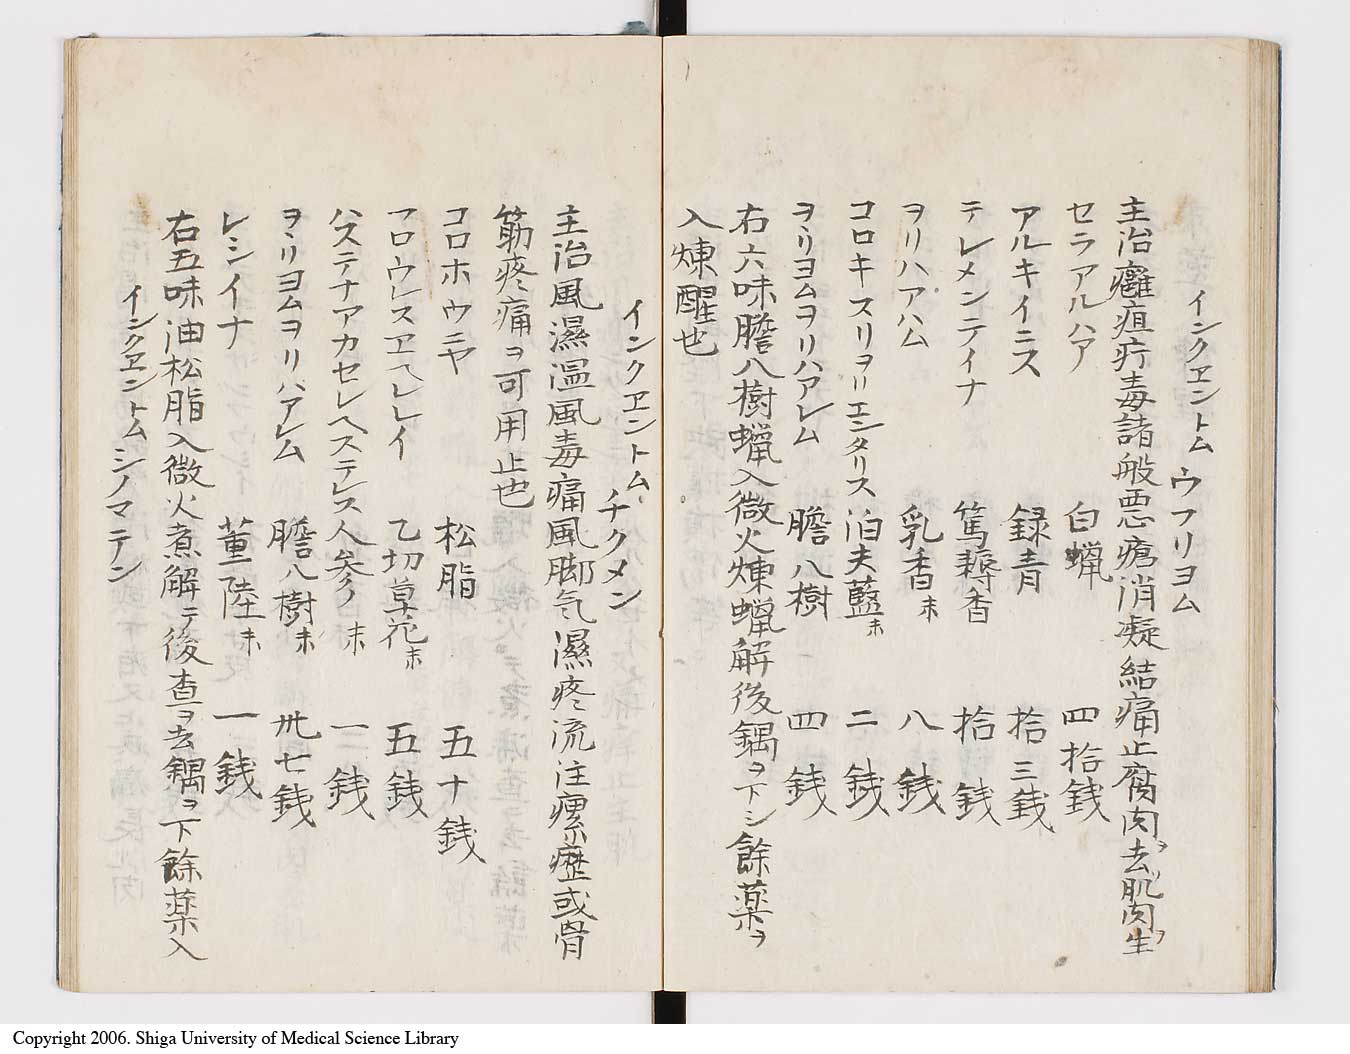 インクヱントム ウフリヨム
主治癰疽疔毒諸般悪瘡消凝結痛止腐肉ヲ去肌肉ヲ生
セラアルハア 白蝋 四拾銭
アルキイニス 録青 拾三銭
テレメンテイナ 篤耨香 拾銭
ヲリハアハム 乳香末 八銭
コロキスリヲリエンタリス 泊夫藍末 二銭
ヲヽリヨムヲリハアレム 膽八樹 四銭
右六味膽八樹蝋入微火煉蝋解後鍋ヲ下シ餘薬ヲ
入煉醒也
インクヱントム チクメン
主治風濕温風毒痛風脚気濕疼流注瘰癧或骨
筋疼痛ヲ可用止也
コロホウニヤ 松脂 五十銭
フロウレス 乙切草花末 五銭
ハステナアカセレヘステレス 人参末 一二銭
ヲヽリヨムヲリハアレム 膽八樹末 卅七銭
レシイナ 薫陸末 一銭
右五味油松脂入微火煮解テ後査ヲ去鍋ヲ下餘薬入
インクヱントムシノマテン
Copyright 2006. Shiga University of Medical Science Library